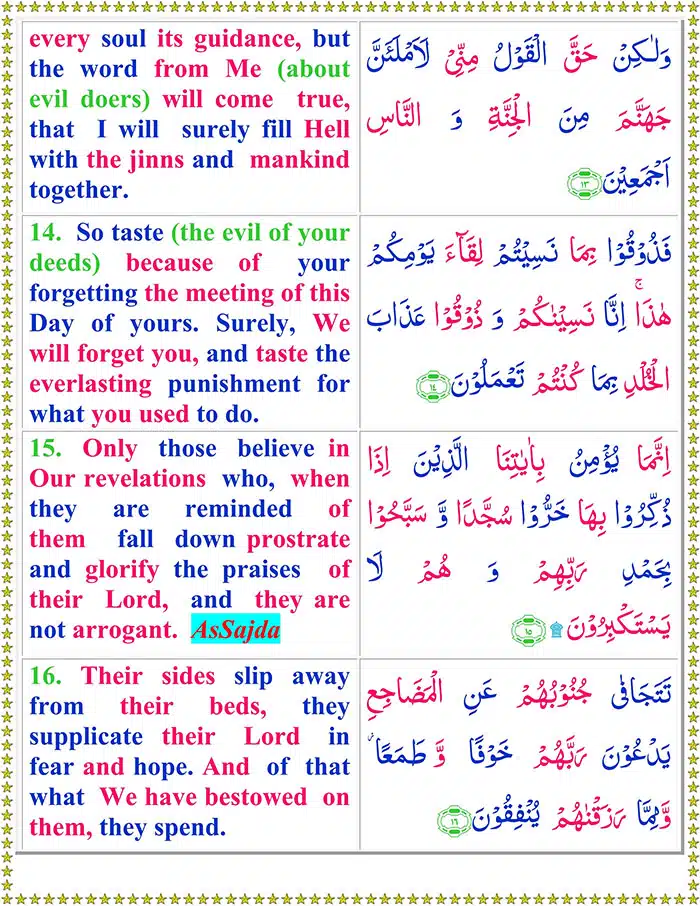 every soul its guidance, but
the word from Me (about
evil doers) will come true,
that I will surely fill Hell
with the jinns and mankind
together.
وَلٰكِنْ حَقَّ الْقَوْلُ مِنِّيْ لَاَمْلَئَنَّ
جَهَنَّمَ مِنَ الْجِنَّةِ وَ النَّاسِ
اَجْمَعِيْنَ ۱۳
14. So taste (the evil of your
deeds) because of your
forgetting the meeting of this
Day of yours. Surely, We
will forget you, and taste the
everlasting punishment for
what you used to do.
فَذُوْقُوْا بِمَا نَسِيْتُمْ لِقَآءَ يَوْمِكُمْ
هٰذَا ۚ اِنَّا نَسِيْنٰكُمْ وَ ذُوْقُوْا عَذَابَ
الْخُلْدِ بِمَا كُنْتُمْ تَعْمَلُوْنَ ۱۴
15. Only those believe in
Our revelations who, when
they are reminded of
them fall down prostrate
and glorify the praises of
their Lord, and they are
not arrogant. AsSajda
اِنَّمَا يُؤْمِنُ بِاٰيٰتِنَا الَّذِيْنَ اِذَا
ذُكِّرُوْا بِهَا خَرُّوْا سُجَّدًا وَّ سَبَّحُوْا
بِحَمْدِ رَبِّهِمْ وَ هُمْ لَا
يَسْتَكْبِرُوْنَ ۩ ۱۵
16. Their sides slip away
from their beds, they
supplicate their Lord in
fear and hope. And of that
what We have bestowed on
them, they spend.
تَتَجَافٰى جُنُوْبُهُمْ عَنِ الْمَضَاجِعِ
يَدْعُوْنَ رَبَّهُمْ خَوْفًا وَّ طَمَعًا ؗ
وَّمِمَّا رَزَقْنٰهُمْ يُنْفِقُوْنَ ۱۶